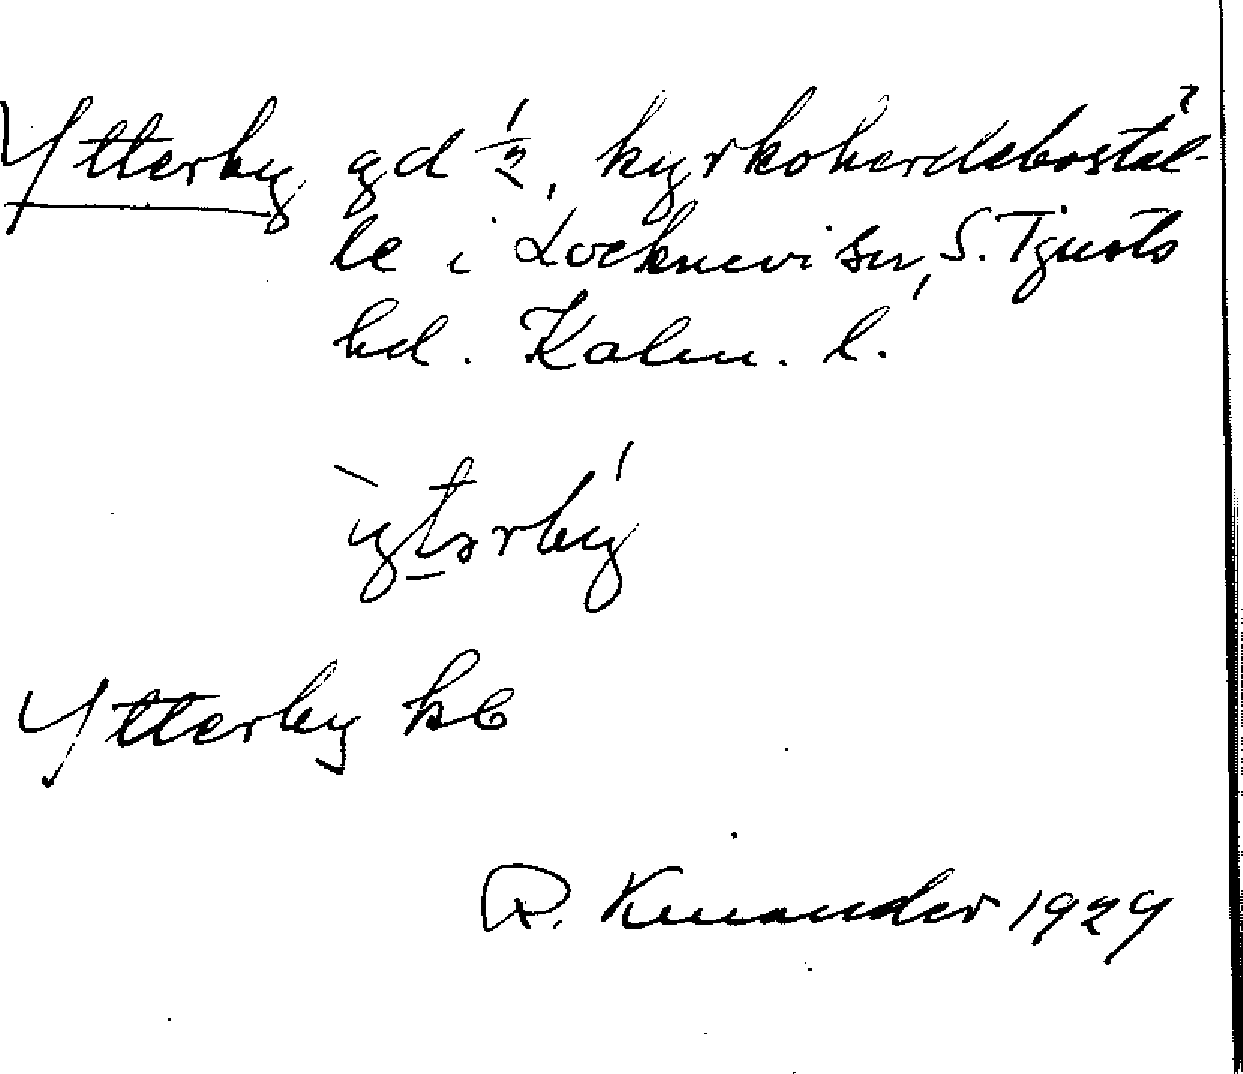 Ytterby gd 1/2, kyrkoherdeboställ-
le i Lockneviken, S. Tjusts
hd. Kalm. l.
ỳtərbý
Ytterby kb
R. Kinander 1929